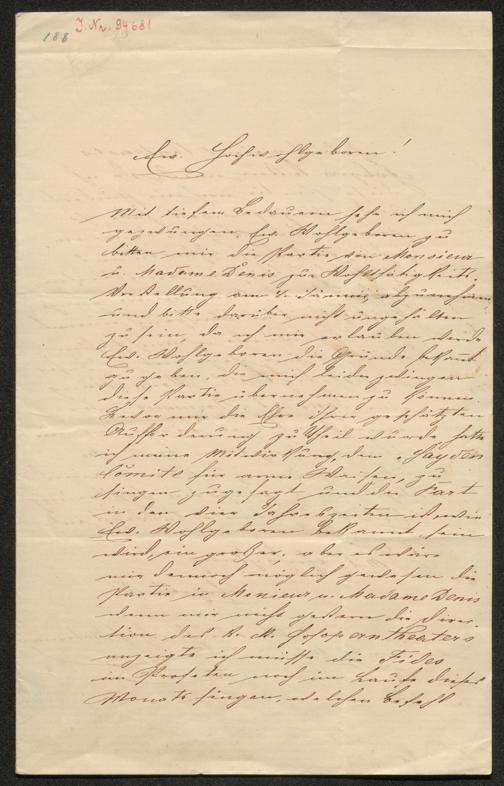 188
J. Nr. 94681
Ew. Hochwohlgeboren!
Mit tiefem Bedauern sehe ich mich
gezwungen, Ew. Wohlgeboren zu
bitten mir die Partie von Monsieur
u. Madame Denis zur Wohlthätigkeits-
Vorstellung am 4. Jänner abzunehmen
und bitte darüber nicht ungehalten
zu sein, da ich mir erlauben werde
Ew. Wohlgeboren die Gründe bekannt
zu geben, die mich leider zwingen
diese Partie übernehmen zu können
Bevor mir die Ehre ihrer geschätzten
Aufforderung zu Theil wurde hatte
ich meine Mitwirkung, dem "Haydn
Comité für arme Waisen, zu
singen zugesagt und der Part
in den vier Jahreszeiten ist, wie
Ew. Wohlgeboren bekannt sein
wird, ein großer, aber es wäre
mir dennoch möglich gewesen die
Partie in Monsieur u. Madame Denis
wenn mir nicht gestern die Direc-
tion des k. k. Hofoperntheaters
anzeigte ich müsse die Fides
im Profeten noch im Laufe dieses
Monats singen, welchen Befehl